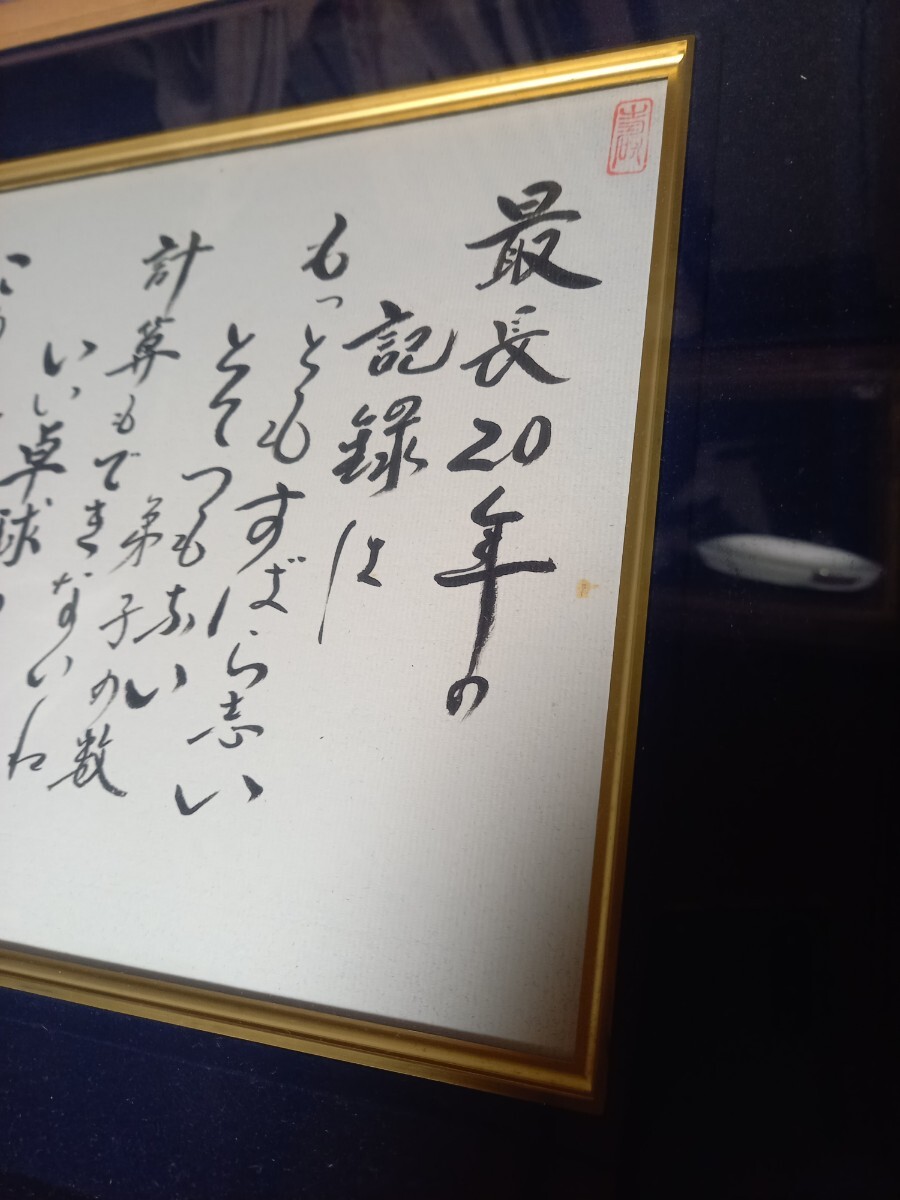 最長20年の
記録は
もっともすばら志い
とてつもない
弟子の数
計算もできない
いい卓球